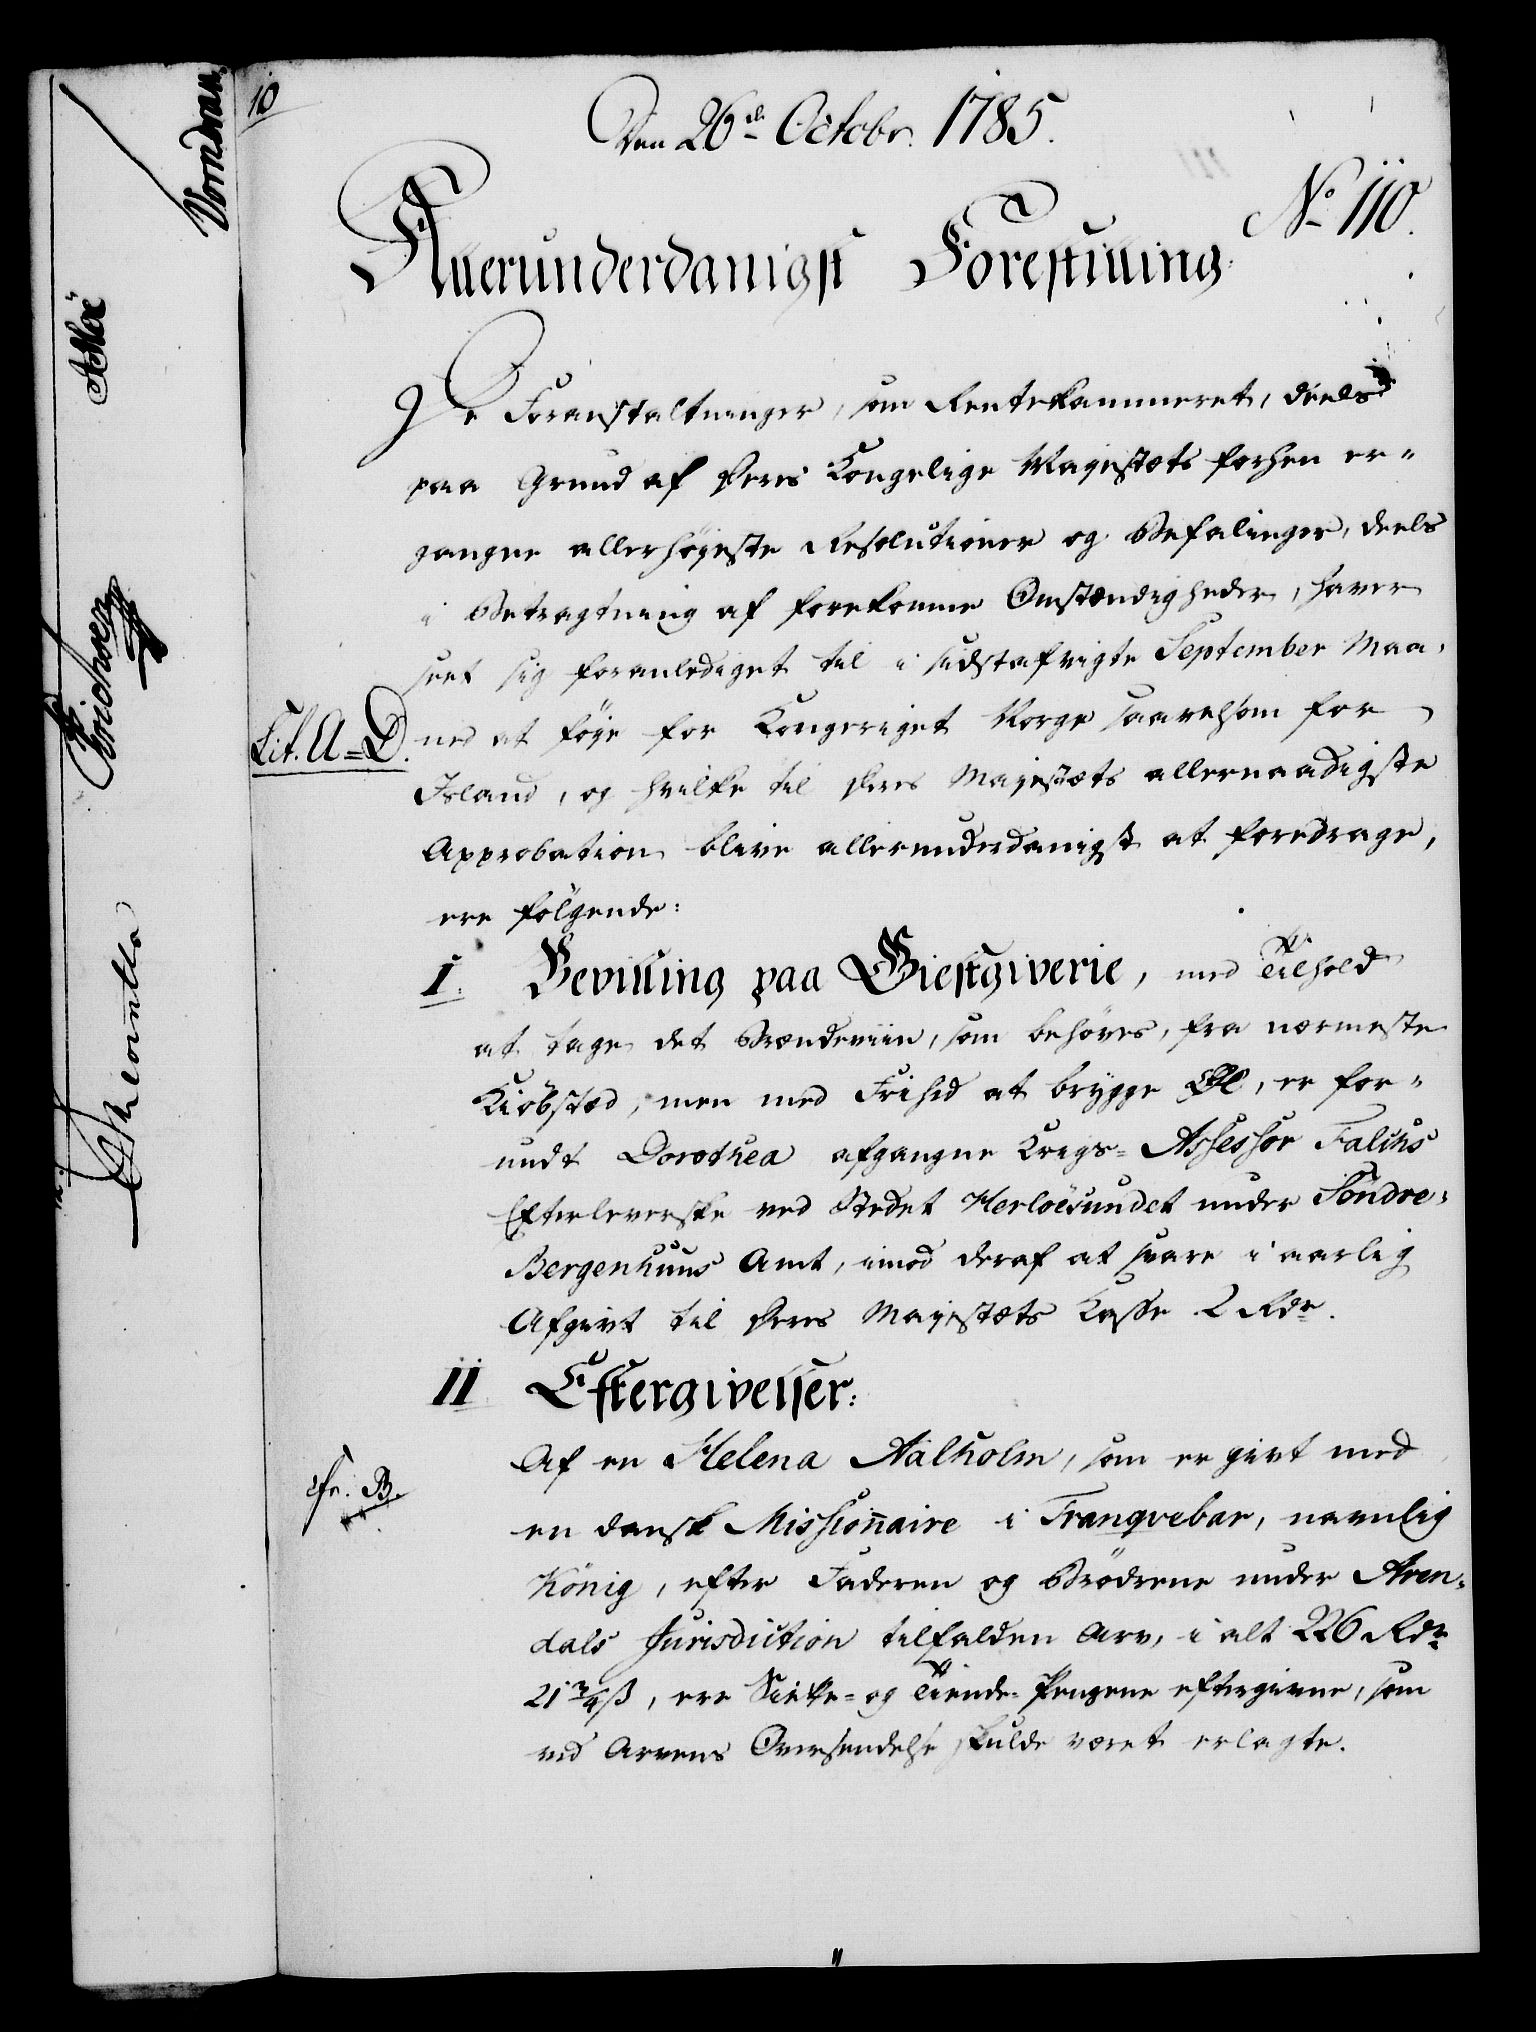 10
Den 26de Octobr. 1785.
No 110.
Allerunderdanigst Forestilling:
De Foranstaltninger, som Rentekammeret, deels
paa Grund af Deres Kongelige Majestæts forhen er-
gangne allerhöjeste Resolutioner og Befalinger, deels
i Betragtning af forekomne Omstændigheder, haver
seet sig foranlediget til i sidstafvigte September Maa-
ned at föje for Kongeriget Norge saavelsom for
Lit. A=D.
Island, og hvilke til Deres Majestæts allernaadigste
Approbation blive allerunderdanigst at foredrage,
ere fölgende:
I. Bevilling paa Giestgiverie, med Tilhold
at tage det Brændeviin, som behöves, fra nærmeste
Kiöbstæd, men med Frihed at brygge Öl, er for-
undt Dorothea afgangne Krigs-Assessor Falchs
Efterleverske ved Stedet Herlöesundet under Söndre-
Bergenhuus Amt, imod deraf at svare i aarlig
Afgivt til Deres Majestæts Kasse 2 Rdr.
II Eftergivelser:
Af en Helena Aalholm, som er givt med
cfr. B.
en dansk Missionnaire i Tranqvebar, navnlig
König, efter Faderen og Brödrene under Aren-
dals Jurisdiction tilfalden Arv, i alt 226 Rdr
21 3/4 ß, ere Siette- og Tiende-Pengene eftergivne, som
ved Arvens Oversendelse skulde været erlagte.
Vorndran.